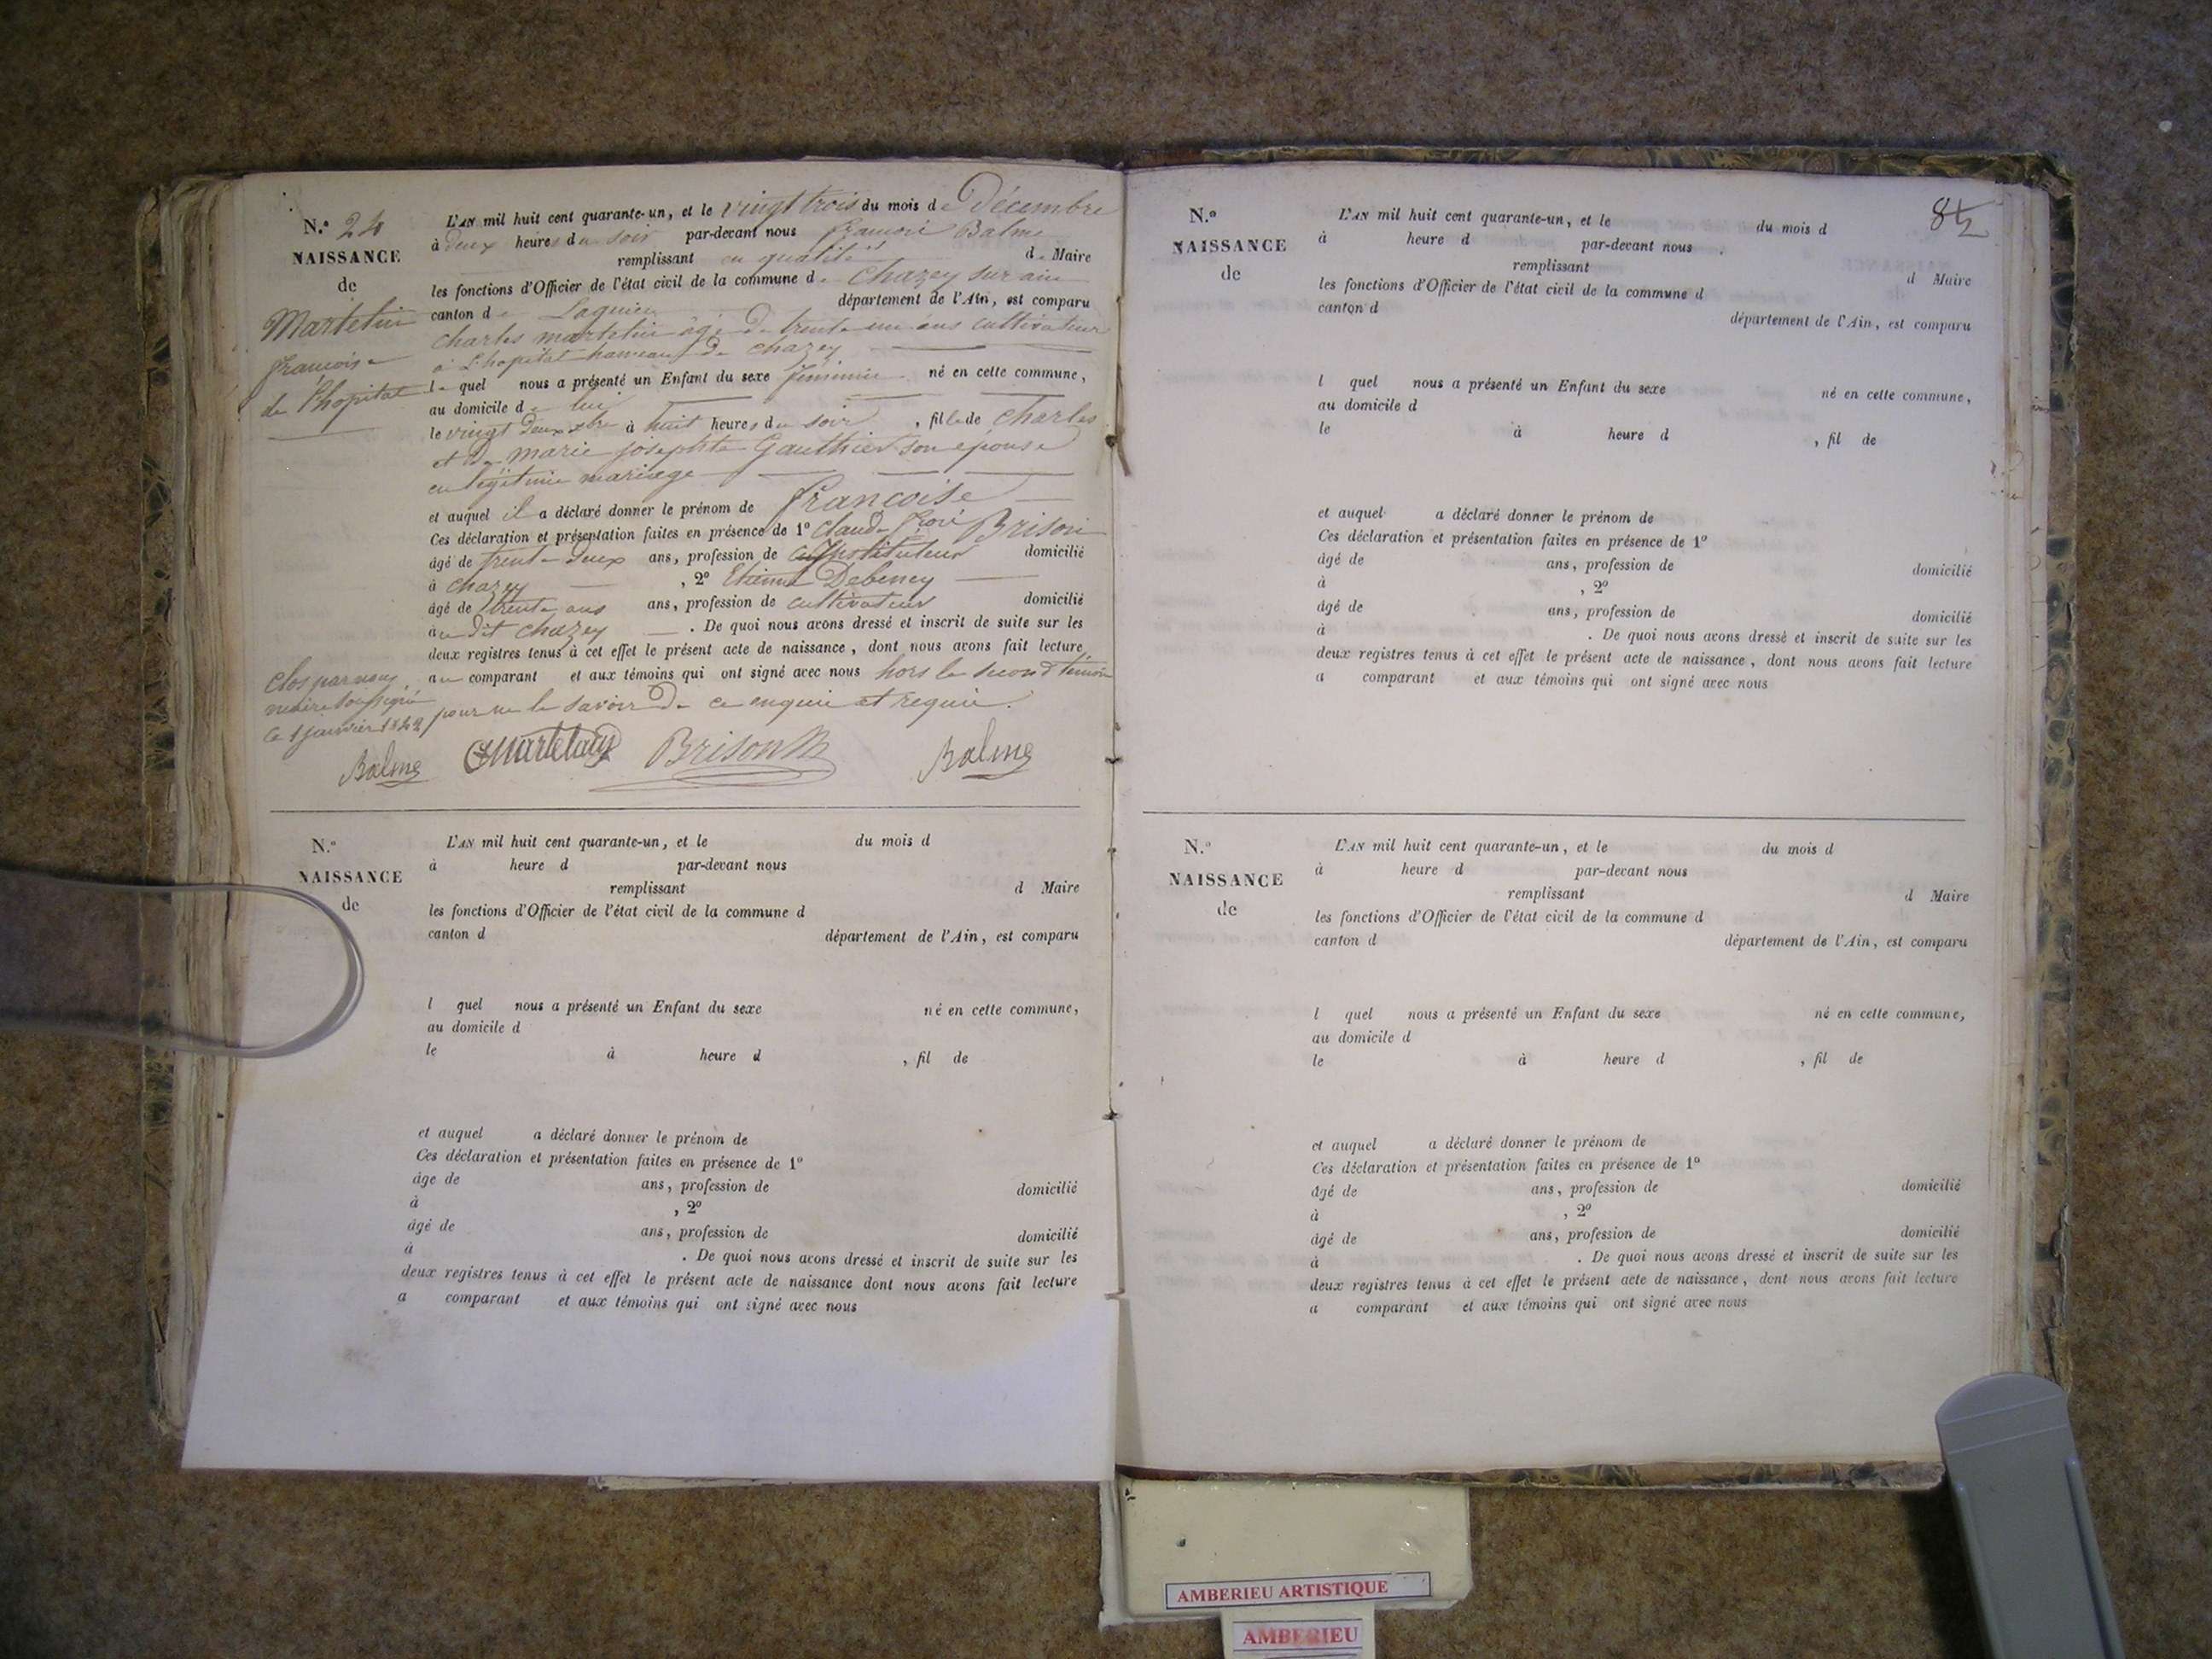 N.° 24
NAISSANCE
de
Martelin
françoise
de l'hopital
L'AN mil huit cent quarante-un, et le vingt trois du mois de Décembre
à deux heures du soir par-devant nous françois Balme
remplissant en qualité de Maire
les fonctions d'Officier de l'état civil de la commune de Chazey sur ain
canton de Lagnieu département de l'Ain, est comparu
Charles martelin âgé de trente un ans cultivateur
à L'hopital hameau de chazey
lequel nous a présenté un Enfant du sexe féminin né en cette commune,
au domicile de lui
le vingt deux xbre à huit heures du soir, fille de Charles
et de marie josephte Gauthier son épouse
en légitime mariage
et auquel il a déclaré donner le prénom de françoise
Ces déclaration et présentation faites en présence de 1° Claude Brison
âgé de trente deux ans, profession de Instituteur domicilié
à chazey, 2° Etienne Debeney
âgé de trente ans ans, profession de cultivateur domicilié
au dit chazey. De quoi nous avons dressé et inscrit de suite sur les
deux registres tenus à cet effet le présent acte de naissance, dont nous avons fait lecture
au comparant et aux témoins qui ont signé avec nous hors le second témoin
pour ne le savoir de ce enquis et requis.
Clos par nous
maire soussigné
le 1 janvier 1842
Balme Brison Balme
N.°
NAISSANCE
de
L'AN mil huit cent quarante-un, et le du mois d
à heure d par-devant nous
remplissant d Maire
les fonctions d'Officier de l'état civil de la commune d
canton d département de l'Ain, est comparu
l quel nous a présenté un Enfant du sexe né en cette commune,
au domicile d
le à heure d , fil de
et auquel a déclaré donner le prénom de
Ces déclaration et présentation faites en présence de 1°
âge de ans, profession de domicilié
à , 2°
âgé de ans, profession de domicilié
à . De quoi nous avons dressé et inscrit de suite sur les
deux registres tenus à cet effet le présent acte de naissance dont nous avons fait lecture
a comparant et aux témoins qui ont signé avec nous
N.°
NAISSANCE
de
L'AN mil huit cent quarante-un, et le du mois d
à heure d par-devant nous
remplissant d Maire
les fonctions d'Officier de l'état civil de la commune d
canton d département de l'Ain, est comparu
l quel nous a présenté un Enfant du sexe né en cette commune,
au domicile d
le à heure d , fil de
et auquel a déclaré donner le prénom de
Ces déclaration et présentation faites en présence de 1°
âgé de ans, profession de domicilié
à , 2°
âgé de ans, profession de domicilié
à . De quoi nous avons dressé et inscrit de suite sur les
deux registres tenus à cet effet le présent acte de naissance, dont nous avons fait lecture
a comparant et aux témoins qui ont signé avec nous
N.°
NAISSANCE
de
L'AN mil huit cent quarante-un, et le du mois d
à heure d par-devant nous
remplissant d Maire
les fonctions d'Officier de l'état civil de la commune d
canton d département de l'Ain, est comparu
l quel nous a présenté un Enfant du sexe né en cette commune,
au domicile d
le à heure d , fil de
et auquel a déclaré donner le prénom de
Ces déclaration et présentation faites en présence de 1°
âgé de ans, profession de domicilié
à , 2°
âgé de ans, profession de domicilié
à . De quoi nous avons dressé et inscrit de suite sur les
deux registres tenus à cet effet le présent acte de naissance, dont nous avons fait lecture
a comparant et aux témoins qui ont signé avec nous
AMBERIEU ARTISTIQUE
AMBERIEU